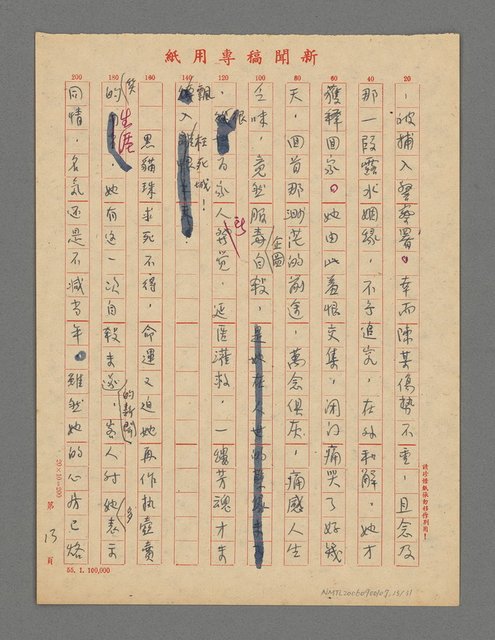 新聞稿專用紙
20 40 60 80 100 120 140 160 180 200
，被捕入警察署。幸而陳某傷勢不重，且念及
那一段露水姻緣，不予追究，在外和解，她才
獲釋回家。她由此羞恨交集，閉門痛哭了好幾
天，回首那渺茫的前途，萬念俱灰，痛感人生
乏味，竟然服毒自殺，企圖
家人發覺，延醫灌救，一縷芳魂才未
飄入枉死城！
黑貓珠求死不得，命運又迫她再作執壺賣
笑的生涯她有這一次自殺未遂的新聞，客人對她多表示
同情，名氣還是不減當年。雖然她的心房已烙
請珍惜紙張勿移作別用！
20×10=200
第13頁
55. 1. 100,000